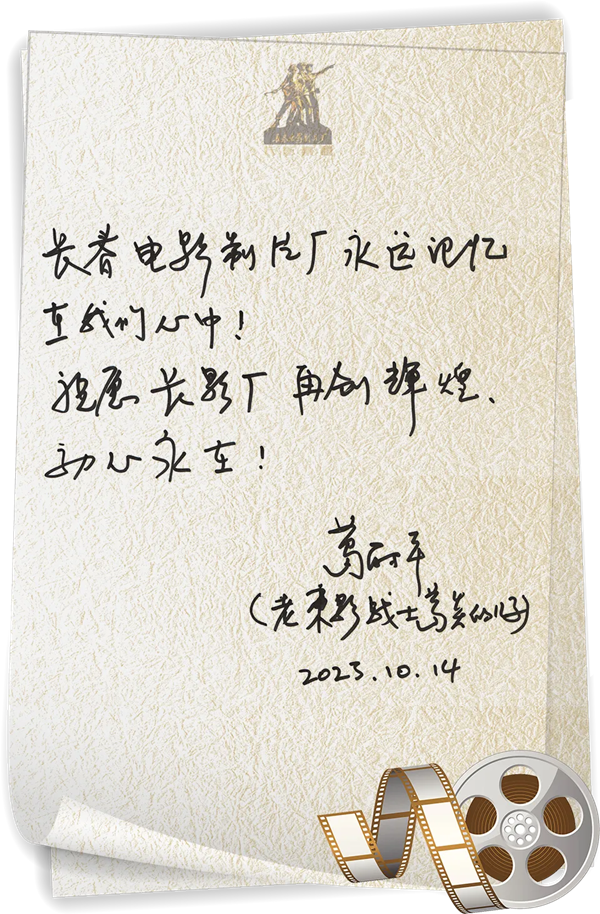 长春电影制片厂
长春电影制片厂永远记忆
在我们心中!
祝愿长影厂再创辉煌、
初心永在!
葛雨平
(老东影战士葛炎的儿子)
2023.10.14